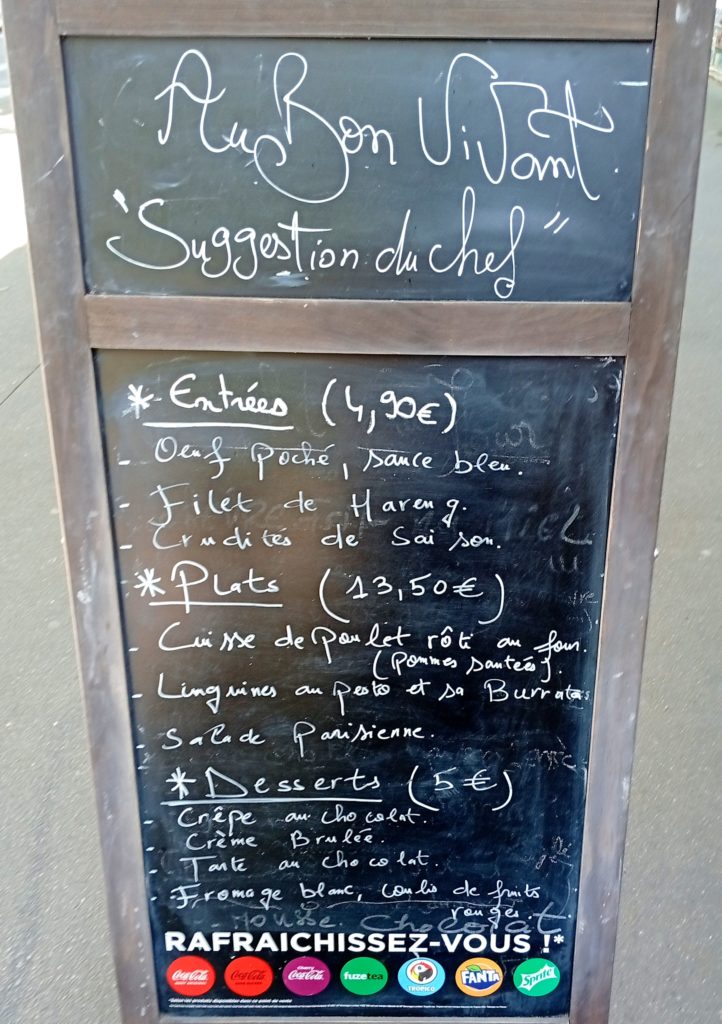 Au Bon Vivant
"Suggestion du chef"
* Entrées (4,90€)
- Oeuf poché, sauce bleu.
- Filet de Hareng.
- Crudités de Saison.
* Plats (13,50€)
- Cuisse de poulet rôti au four.
(pommes sautées).
- Linguines au pesto et sa Burrata
- Salade Parisienne.
* Desserts (5€)
- Crêpe au chocolat.
- Crème Brulée.
- Tarte au chocolat.
- Fromage blanc, coulis de fruits
rouges.
Mousse Chocolat
RAFRAICHISSEZ-VOUS !*
Coca-Cola Coca-Cola Cherry Coca-Cola fuzetea TROPICO FANTA Sprite